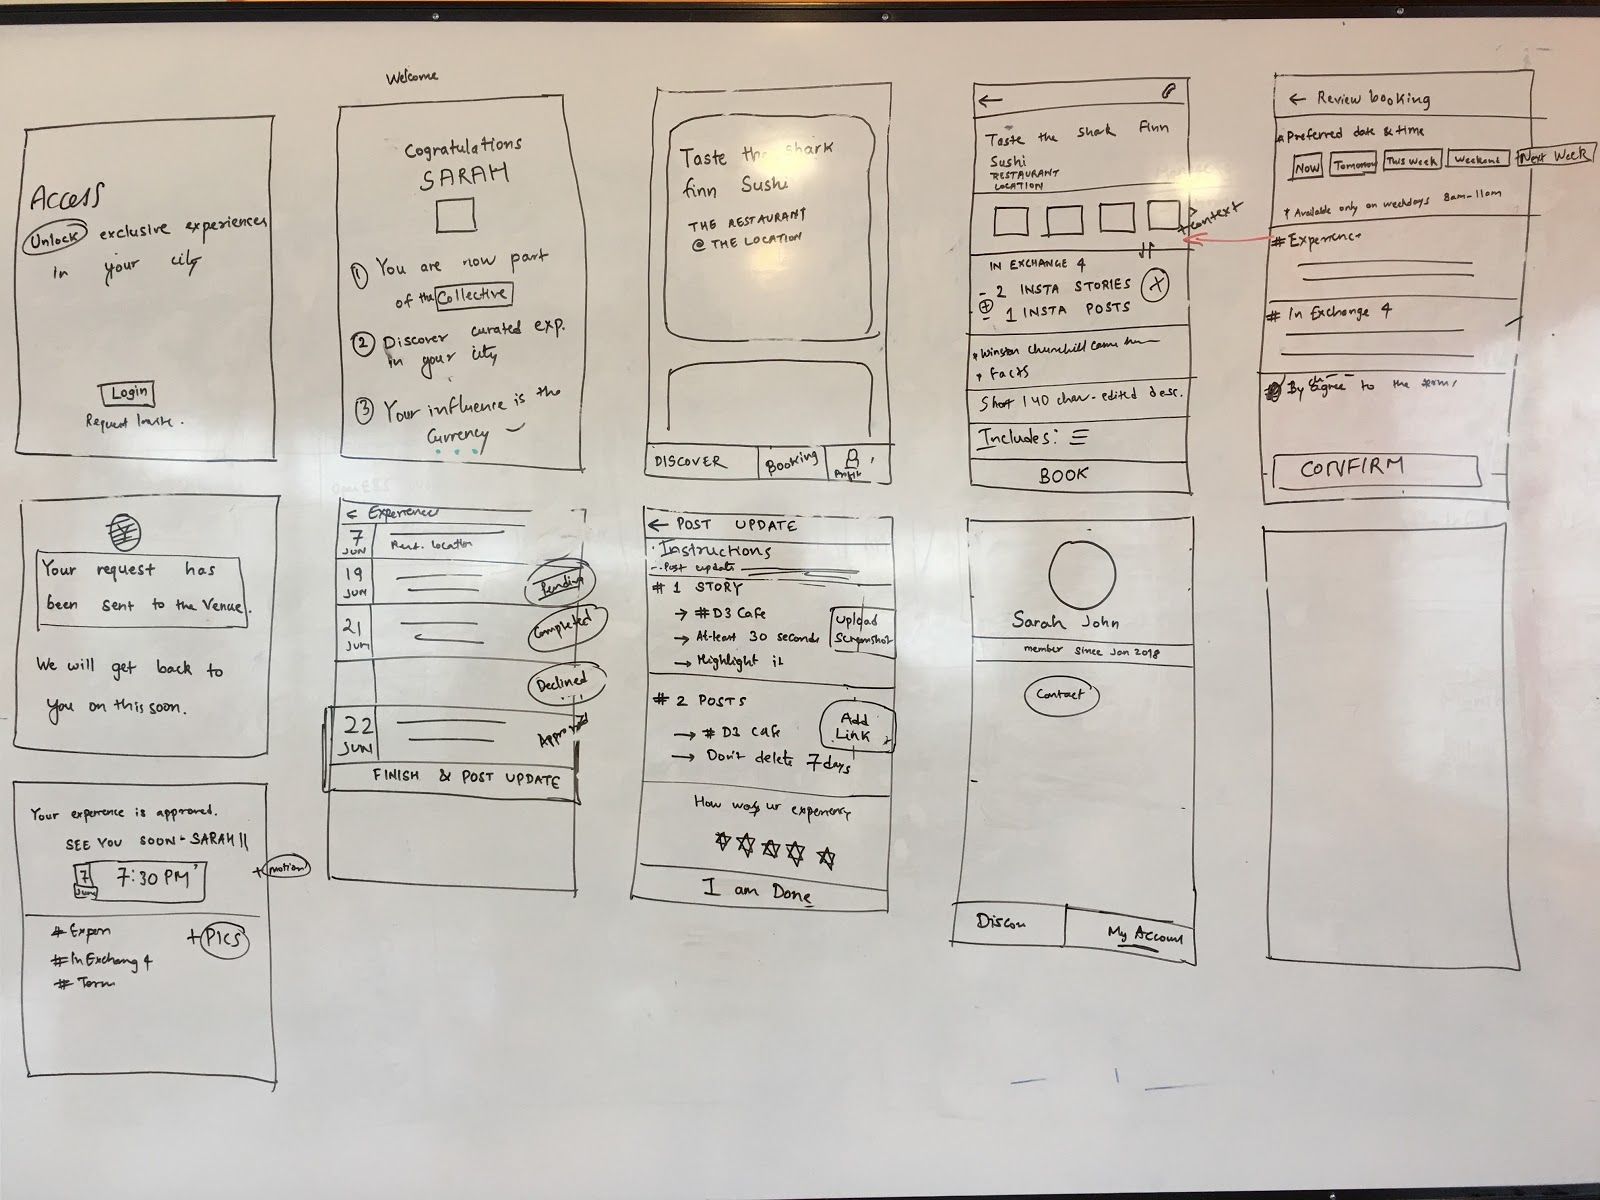 Access
Unlock exclusive experiences
in your city
Login
Request Invite.
Welcome
Cogratulations
SARAH
1 You are now part
of the Collective
2 Discover curated exp.
in your city
3 Your influence is the
currency
Taste the shark
finn Sushi
THE RESTAURANT
@ THE LOCATION
DISCOVER
Booking
Profile
←
Taste the shark Finn
Sushi
RESTAURANT
LOCATION
+ context
IN EXCHANGE 4
- 2 INSTA STORIES
- 1 INSTA POSTS
X
* Winston Churchill came
* Facts
Short 140 char. edited desc.
Includes:
BOOK
← Review booking
Preferred date & time
Now
Tomorrow
This week
Weekend
Next Week
* Available only on weekdays 8am-11am
# Experience
# In Exchange 4
By agree to the terms
CONFIRM
Your request has
been sent to the Venue.
We will get back to
you on this soon.
← Experiences
7 JUN
Rest. location
19 JUN
Pending
21 JUN
Completed
Declined
22 JUN
Approved
FINISH & POST UPDATE
← POST UPDATE
Instructions
Post update
# 1 STORY
→ #D3 Cafe
→ At-least 30 seconds
→ Highlight it
Upload
Screenshot
# 2 POSTS
→ # D3 Cafe
→ Don't delete 7 days
Add
Link
How was ur experience
I am Done
Sarah John
member since Jan 2018
Contact
Discou
My Account
Your experience is approved.
SEE YOU SOON - SARAH!!
7 JUN
7:30 PM
+ motion
# Expen
# In Exchang 4
# Term
+ PICS